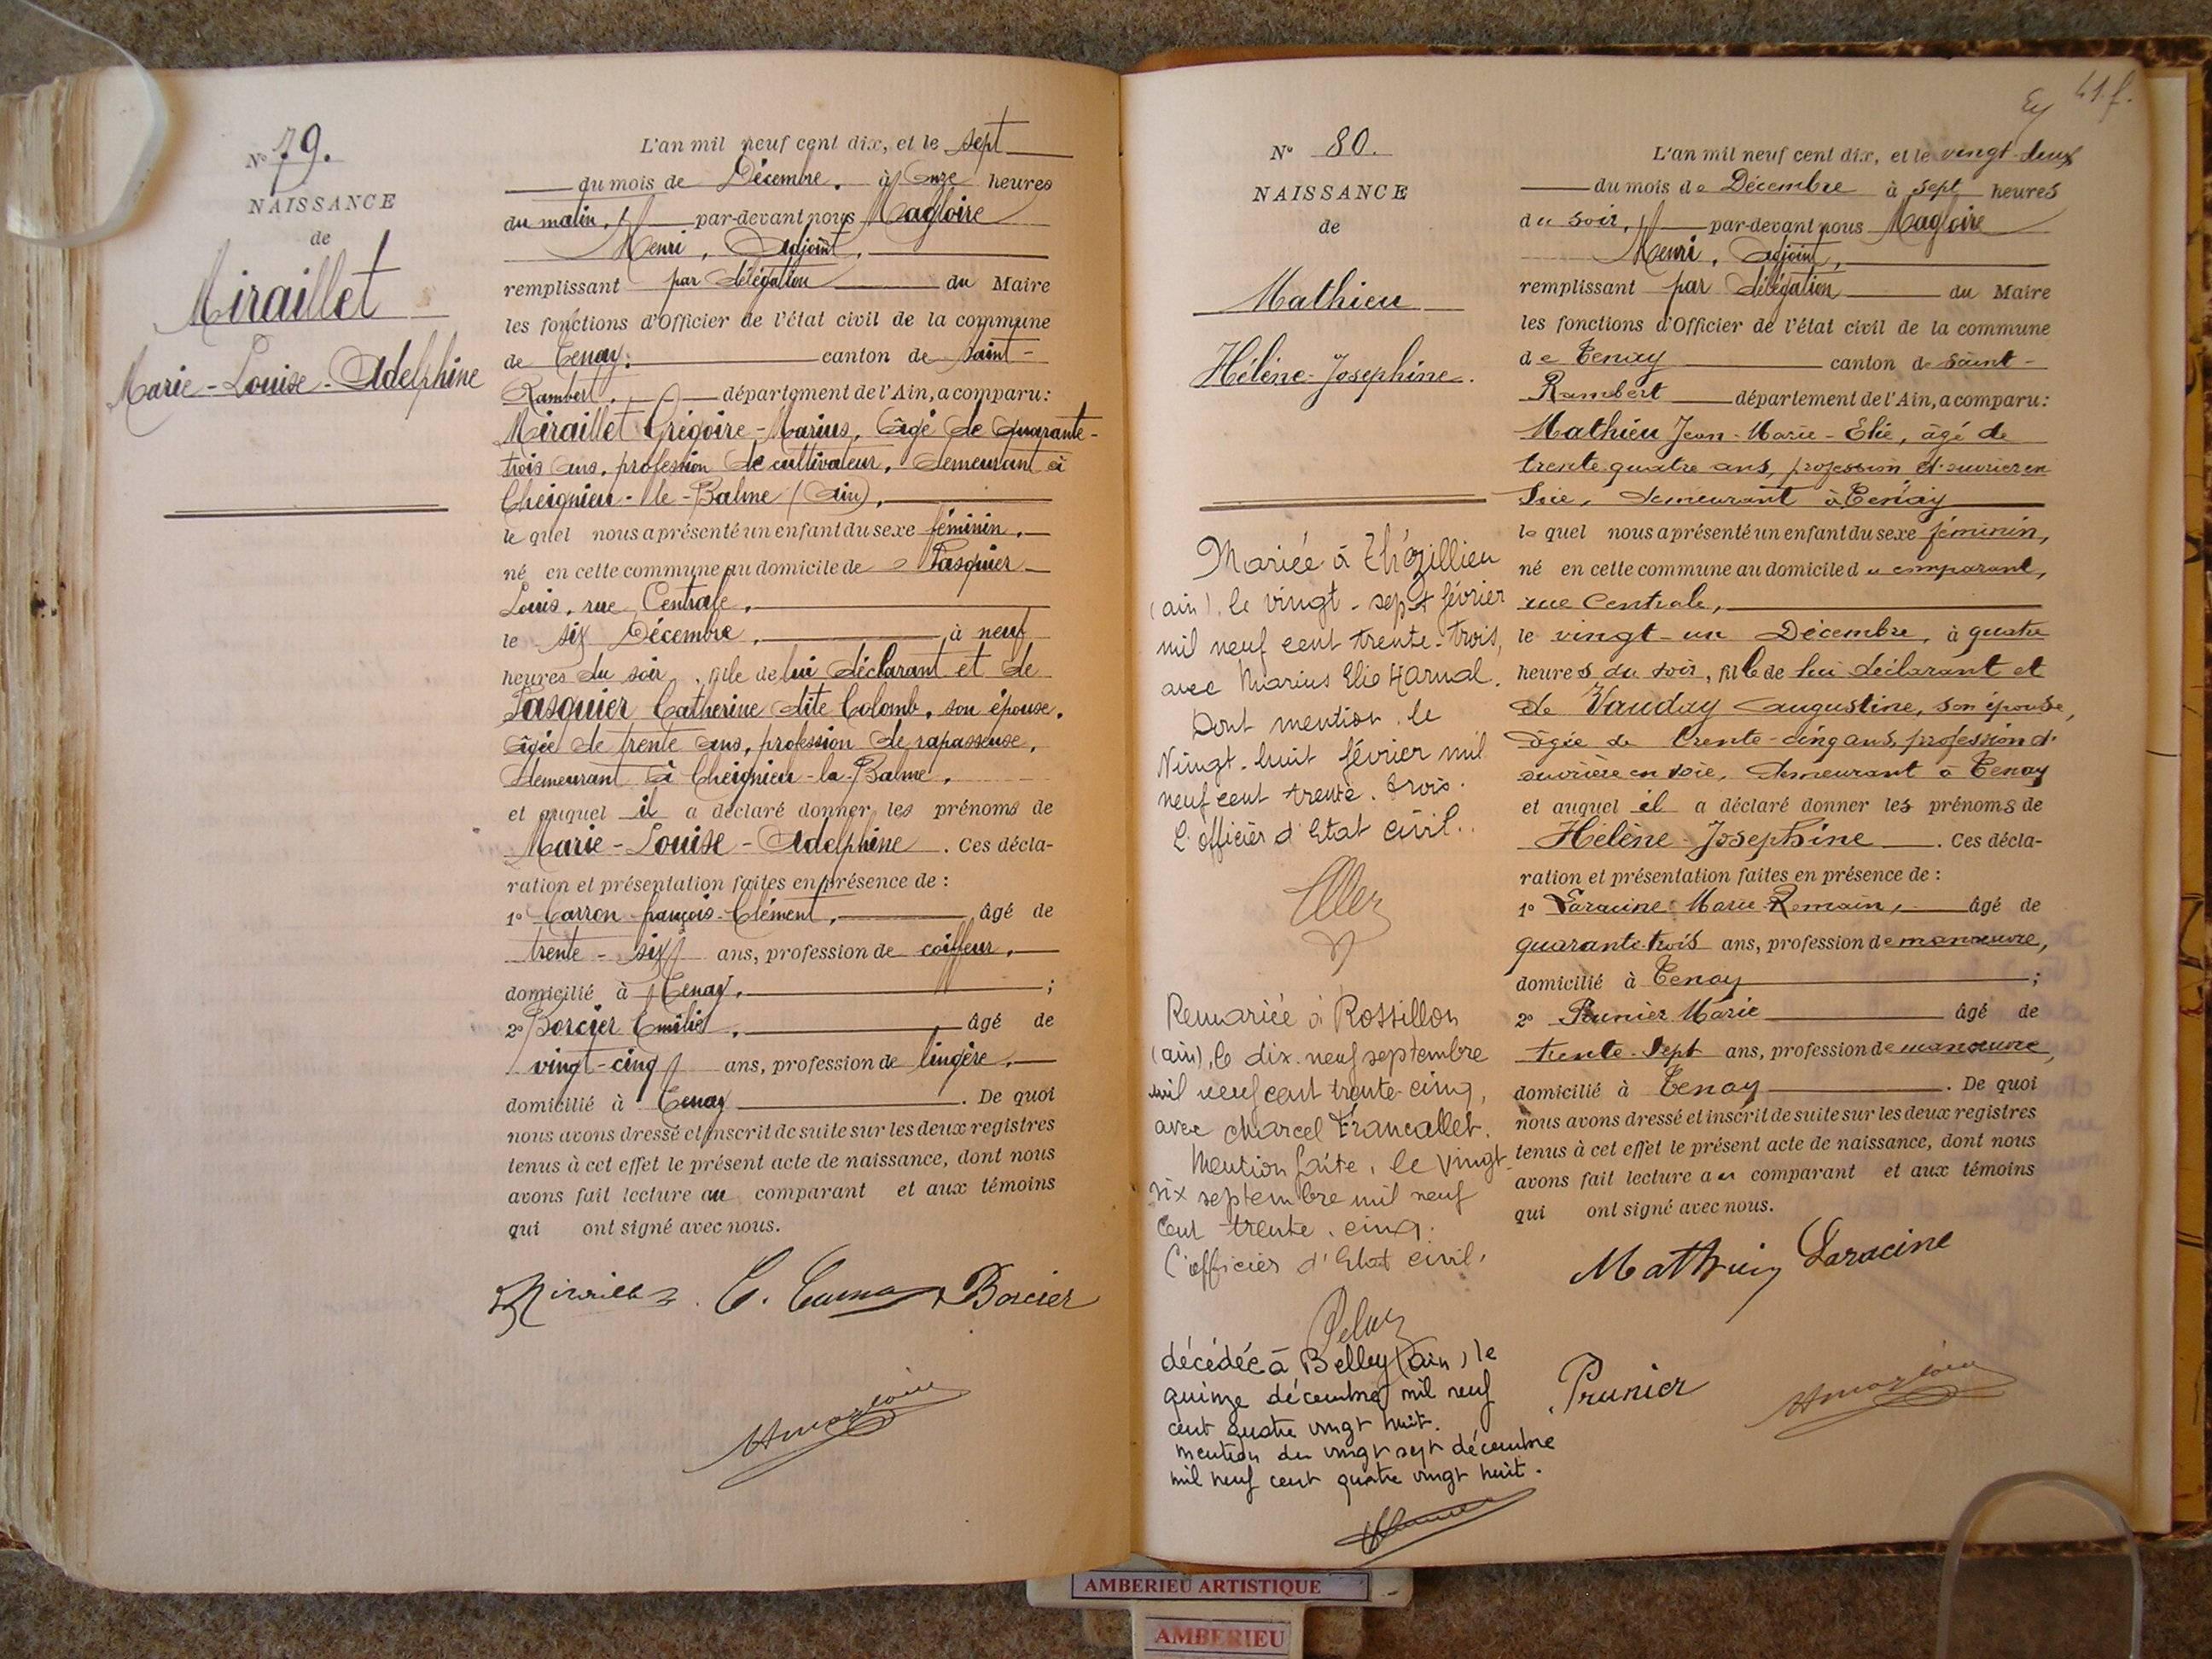 N° 79.
NAISSANCE
de
Miraillet
Marie-Louise-Adelphine
L'an mil neuf cent dix, et le sept
du mois de Décembre, à Onze heures
du matin, par-devant nous Magloire
Henri, Adjoint,
remplissant par délégation du Maire
les fonctions d'Officier de l'état civil de la commune
de Tenay, canton de Saint-
Rambert, département de l'Ain, a comparu:
Miraillet Grégoire-Marius, âgé de Quarante-
trois ans, profession de cultivateur, demeurant à
Cheignieu-la-Balme (Ain),
le quel nous a présenté un enfant du sexe féminin,
né en cette commune au domicile de Pasquier
Louis, rue Centrale,
le six Décembre, à neuf
heures du soir, fille de lui déclarant et de
Pasquier Catherine dite Colomb, son épouse,
âgée de trente ans, profession de rapasseuse,
demeurant à Cheignieu-la-Balme,
et auquel il a déclaré donner les prénoms de
Marie-Louise-Adelphine. Ces décla-
ration et présentation faites en présence de :
1° Carron françois-Clément, âgé de
trente-six ans, profession de coiffeur,
domicilié à Tenay, ;
2° Borcier Emilie, âgé de
vingt-cinq ans, profession de lingère,
domicilié à Tenay. De quoi
nous avons dressé et inscrit de suite sur les deux registres
tenus à cet effet le présent acte de naissance, dont nous
avons fait lecture au comparant et aux témoins
qui ont signé avec nous.
Borcier
41 f.
N° 80.
NAISSANCE
de
Mathieu
Hélène-Josephine.
Mariée à Thézillieu
(ain), le vingt-sept février
mil neuf cent trente-trois,
avec Marius Elie Harnal.
Dont mention le
Vingt-huit février mil
neuf cent trente-trois.
L'officier d'Etat civil..
Remariée à Rossillon
(ain), le dix-neuf septembre
mil neuf cent trente-cinq,
avec Marcel Francallet.
Mention faite, le vingt-
six septembre mil neuf
cent trente-cinq.
L'officier d'Etat civil,
décédée à Belley (ain) le
quinze décembre mil neuf
cent quatre vingt huit.
mention du vingt sept décembre
mil neuf cent quatre vingt huit.
L'an mil neuf cent dix, et le vingt-deux
du mois de Décembre à sept heures
du soir, par-devant nous Magloire
Henri, Adjoint,
remplissant par délégation du Maire
les fonctions d'Officier de l'état civil de la commune
de Tenay canton de saint-
Rambert département de l'Ain, a comparu:
Mathieu Jean-Marie-Elie, âgé de
trente quatre ans, profession d'ouvrier en
soie, demeurant à Tenay
le quel nous a présenté un enfant du sexe féminin,
né en cette commune au domicile du comparant,
rue Centrale,
le vingt-un Décembre, à quatre
heures du soir, fille de lui déclarant et
de Vauday Augustine, son épouse,
âgée de trente-cinq ans, profession d'
ouvrière en soie, demeurant à Tenay
et auquel il a déclaré donner les prénoms de
Hélène-Josephine. Ces décla-
ration et présentation faites en présence de :
1° Laracine Marie-Romain, âgé de
quarante-trois ans, profession de manœuvre,
domicilié à Tenay ;
2° Prunier Marie âgé de
trente-sept ans, profession de manœuvre,
domicilié à Tenay. De quoi
nous avons dressé et inscrit de suite sur les deux registres
tenus à cet effet le présent acte de naissance, dont nous
avons fait lecture au comparant et aux témoins
qui ont signé avec nous.
Laracine
Prunier
AMBERIEU ARTISTIQUE
AMBERIEU